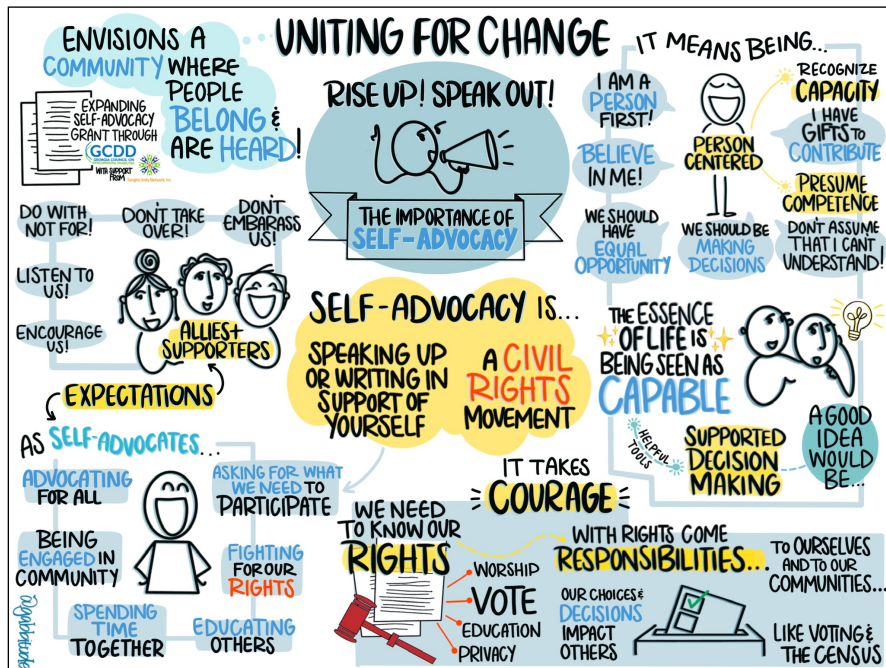 UNITING FOR CHANGE
ENVISIONS A
COMMUNITY WHERE
PEOPLE
BELONG &
ARE HEARD!
EXPANDING
SELF-ADVOCACY
GRANT THROUGH
GCDD
GEORGIA COUNCIL ON
DEVELOPMENTAL DISABILITIES
WITH SUPPORT
FROM
RISE UP! SPEAK OUT!
THE IMPORTANCE OF
SELF-ADVOCACY
IT MEANS BEING...
I AM A
PERSON
FIRST!
BELIEVE
IN ME!
WE SHOULD
HAVE
EQUAL
OPPORTUNITY
PERSON
CENTERED
WE SHOULD BE
MAKING
DECISIONS
RECOGNIZE
CAPACITY
I HAVE
GIFTS TO
CONTRIBUTE
PRESUME
COMPETENCE
DON'T ASSUME
THAT I CAN'T
UNDERSTAND!
DO WITH
NOT FOR!
DON'T TAKE
OVER!
DON'T
EMBARASS
US!
LISTEN TO
US!
ENCOURAGE
US!
ALLIES+
SUPPORTERS
EXPECTATIONS
SELF-ADVOCACY IS...
SPEAKING UP
OR WRITING IN
SUPPORT OF
YOURSELF
A CIVIL
RIGHTS
MOVEMENT
THE ESSENCE
OF LIFE IS
BEING SEEN AS
CAPABLE
HELPFUL
TOOLS
SUPPORTED
DECISION
MAKING
A GOOD
IDEA
WOULD
BE...
AS SELF-ADVOCATES...
ADVOCATING
FOR ALL
BEING
ENGAGED IN
COMMUNITY
SPENDING
TIME
TOGETHER
ASKING FOR WHAT
WE NEED TO
PARTICIPATE
FIGHTING
FOR OUR
RIGHTS
EDUCATING
OTHERS
IT TAKES
COURAGE
WE NEED
TO KNOW OUR
RIGHTS
WORSHIP
VOTE
EDUCATION
PRIVACY
WITH RIGHTS COME
RESPONSIBILITIES...
TO OURSELVES
AND TO OUR
COMMUNITIES...
OUR CHOICES &
DECISIONS
IMPACT
OTHERS
LIKE VOTING &
THE CENSUS